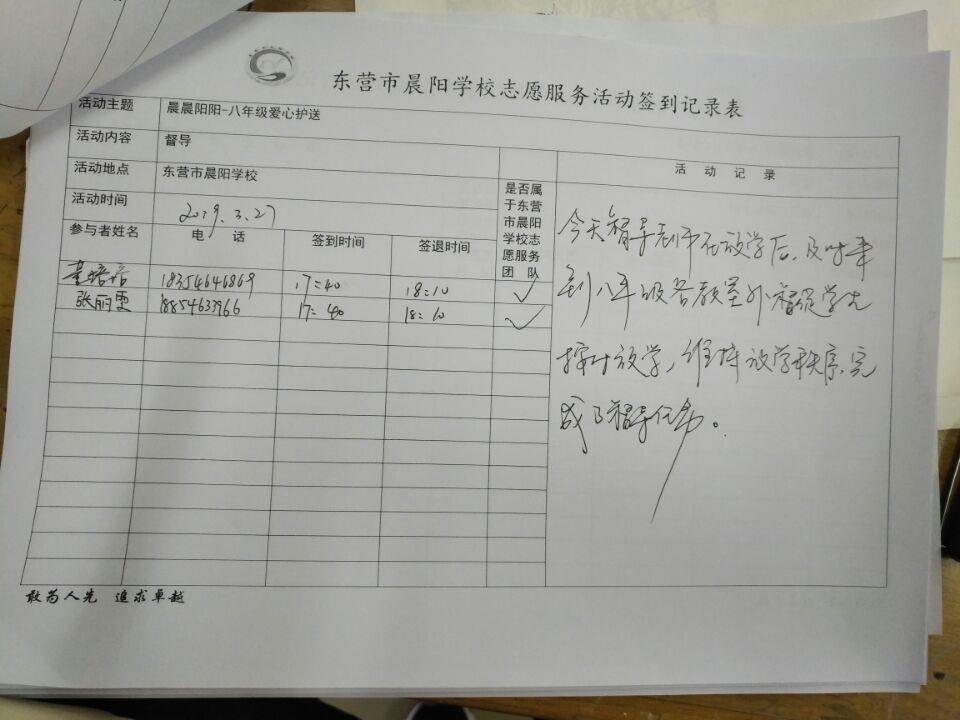 东营市晨阳学校志愿服务活动签到记录表
活动主题 晨晨阳阳-八年级爱心护送
活动内容 督导
活动地点 东营市晨阳学校
活动时间 2019.3.27
参与者姓名 电 话 签到时间 签退时间
是否属
于东营
市晨阳
学校志
愿服务
团 队
18354646869 17:40 18:10 ✓
张丽 18854633966 17:40 18:10 ✓
活 动 记 录
今天督导老师在放学后,及时来
到八年级各教室外督促学生
按时放学,维持放学秩序,完
成了督导任务。
敢为人先 追求卓越